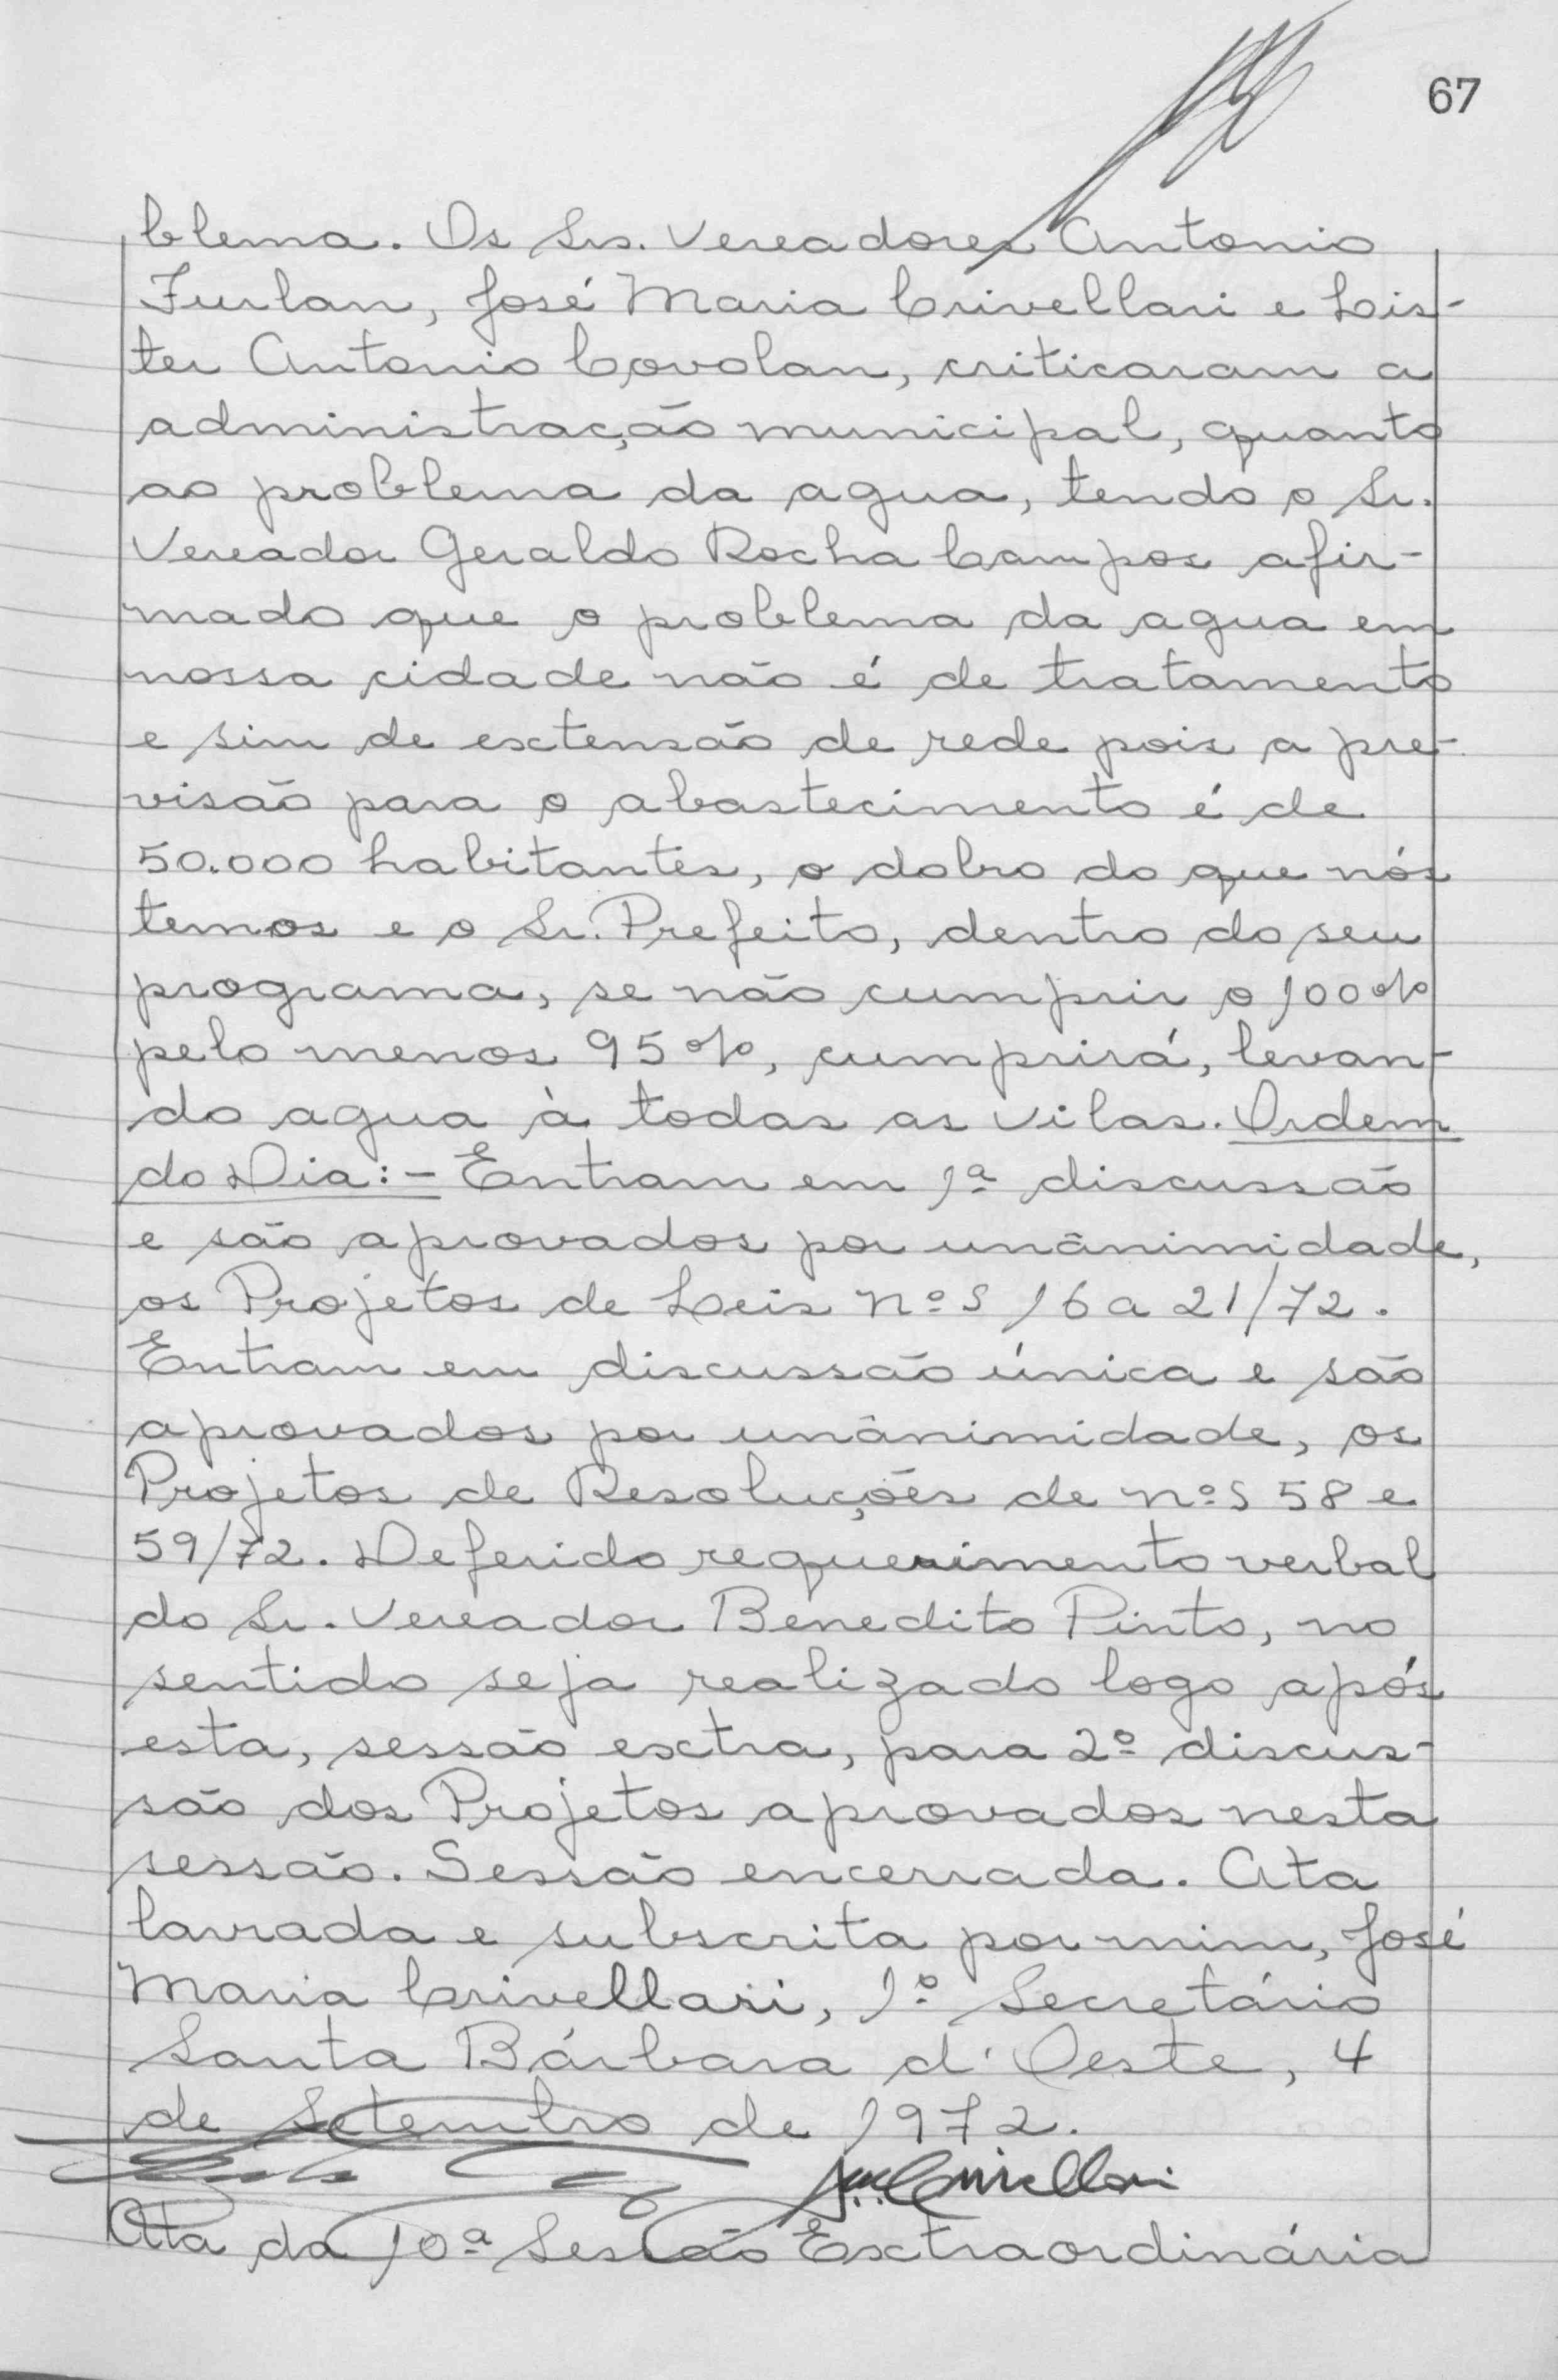 67
blema. Os Srs. Vereadores Antonio
Furlan, José Maria Crivellari e Lis-
ter Antonio Covolan, criticaram a
administração municipal, quanto
ao problema da agua, tendo o Sr.
Vereador Geraldo Rocha Campos afir-
mado que o problema da agua em
nossa cidade não é de tratamento
e sim de extensão de rede pois a pre-
visão para o abastecimento é de
50.000 habitantes, o dobro do que nós
temos e o Sr. Prefeito, dentro do seu
programa, se não cumprir o 100%
pelo menos 95%, cumprirá, levan-
do agua à todas as vilas. Ordem
do Dia:- Entram em 1ª discussão
e são aprovados por unânimidade,
os Projetos de Leis nºs 16 a 21/72.
Entram em discussão única e são
aprovados por unânimidade, os
Projetos de Resoluções de nºs 58 e
59/72. Deferido requerimento verbal
do Sr. Vereador Benedito Pinto, no
sentido seja realizado logo após
esta, sessão extra, para 2º discus-
são dos Projetos aprovados nesta
sessão. Sessão encerrada. Ata
lavrada e subscrita por mim, José
Maria Crivellari, 1º Secretário
Santa Bárbara d'Oeste, 4
de Setembro de 1972.
Crivellari
Ata da 10ª Sessão Extraordinária